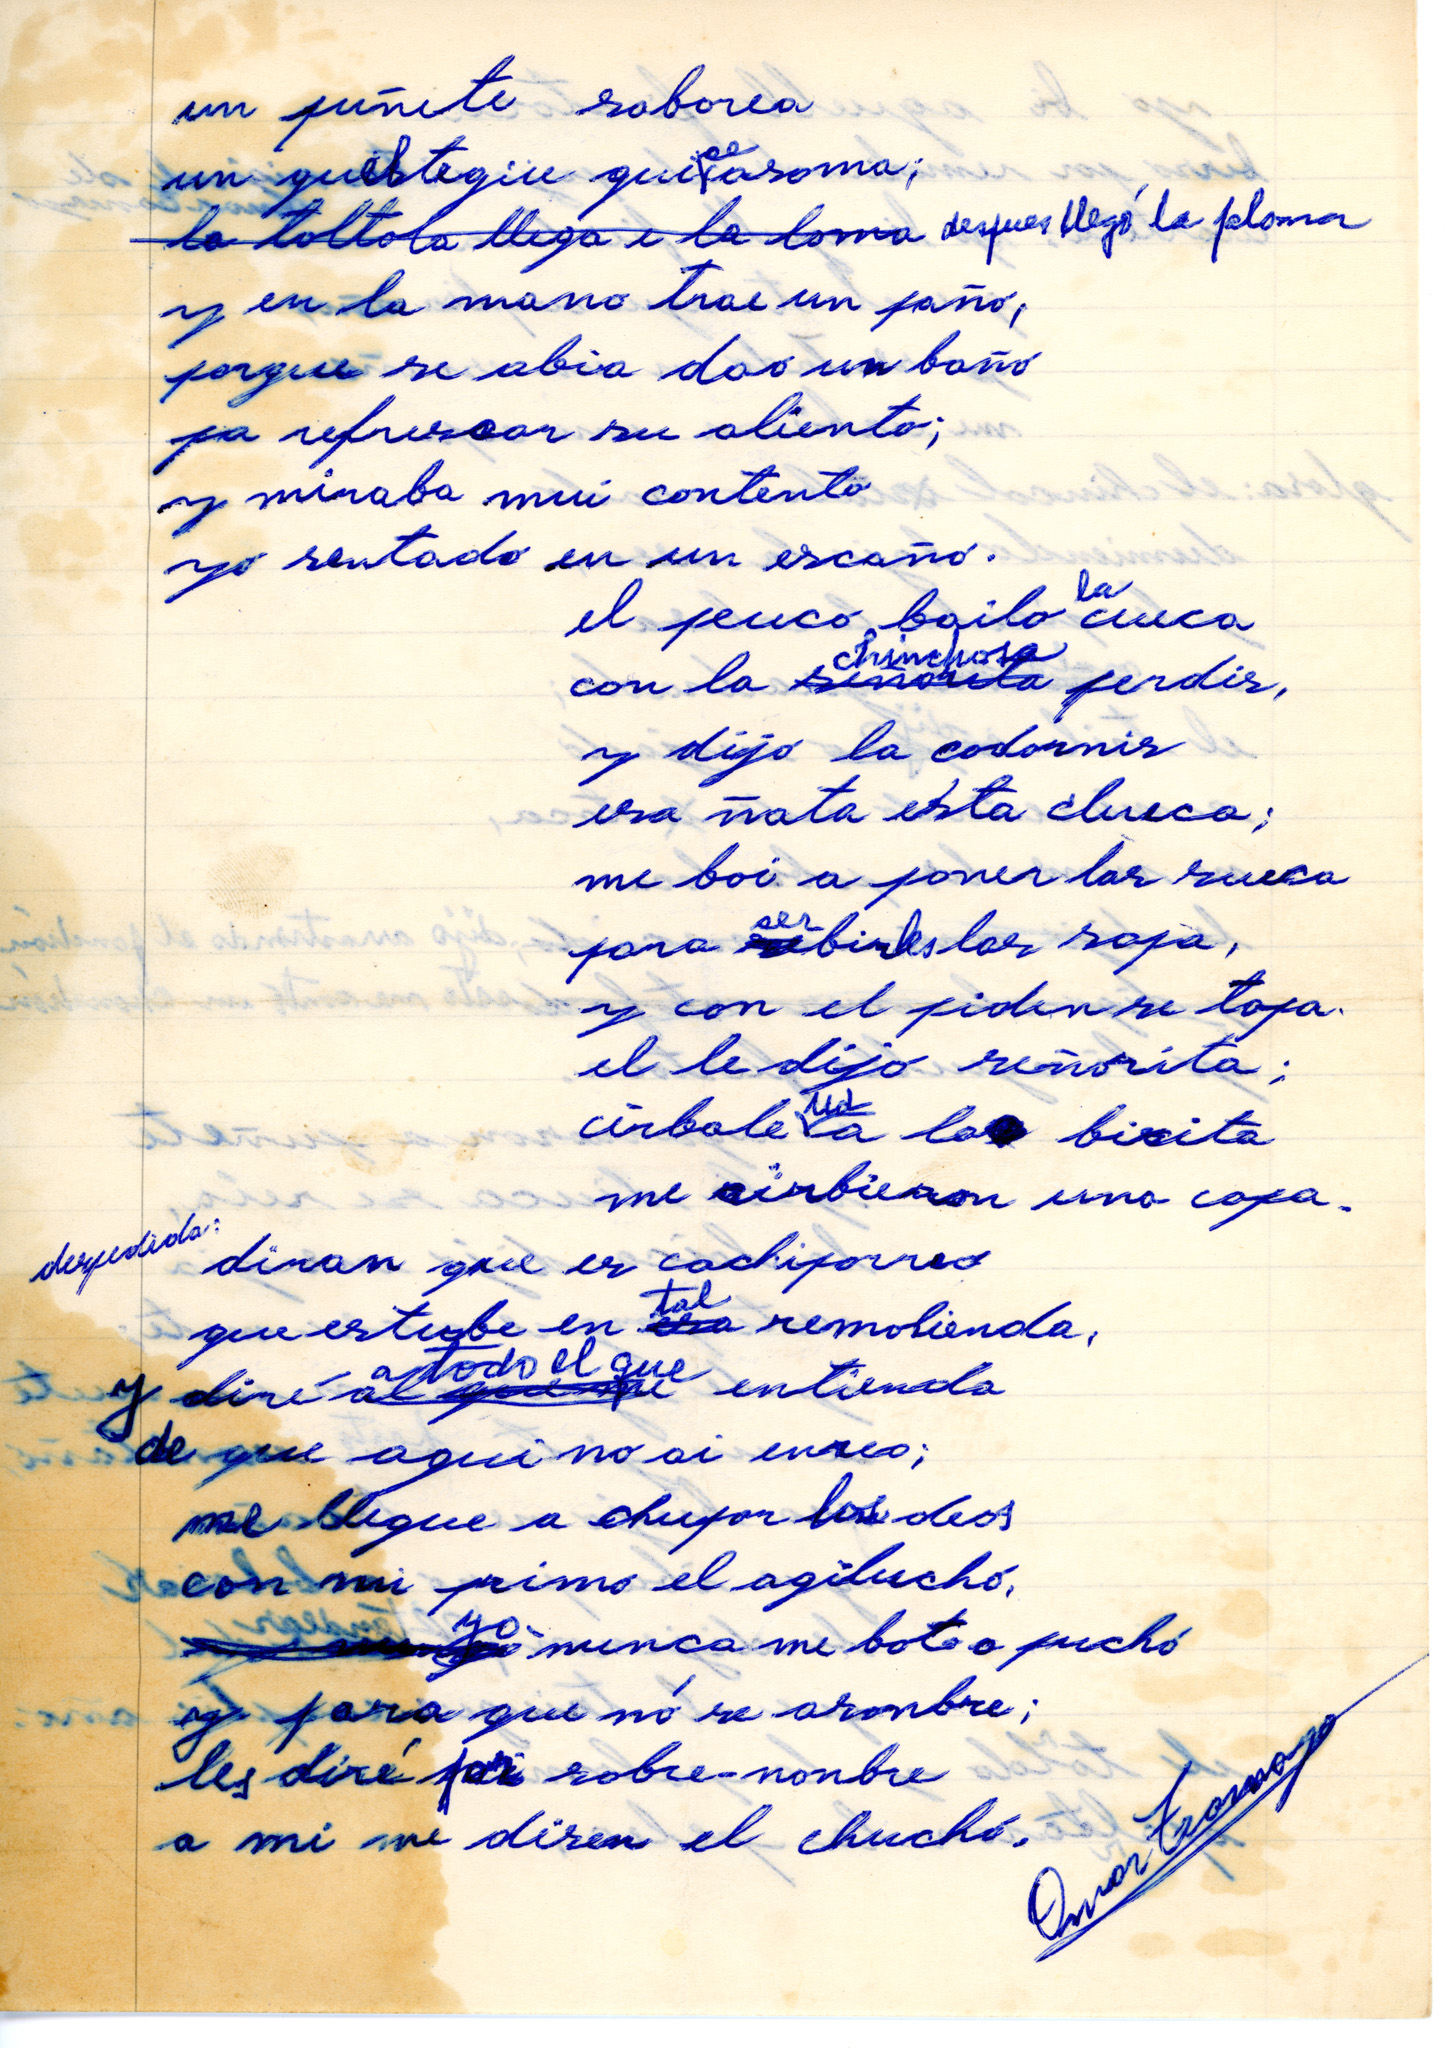 un puñete saborea
un queltegue qui se asoma;
la toltola llega e la loma despues llegó la paloma
y en la mano trae un paño,
porque se abia dao un baño
pa refrescar su aliento;
y miraba mui contento
yo sentado en un escaño.
el peuco bailo la cueca
con la señorita chinchosa perdis,
y dijo la codornis
esa ñata esta clueca;
me boi a poner las sueca
para serbirles las sopa,
y con el piden se topa.
el le dijo señorita;
cirbale ud a la bicita
me cirbieron una copa.
despedida:
diran que es cachiporreo
que estube en esa tal remolienda,
y diré al que me a todo el que entienda
de que aqui no ai enreo;
me llegue a chupar los deos
con mi primo el agilucho,
yo nunca me boto a pucho
y para que nó se asonbre;
les diré por sobre-nonbre
a mi me disen el chucho.
Omar